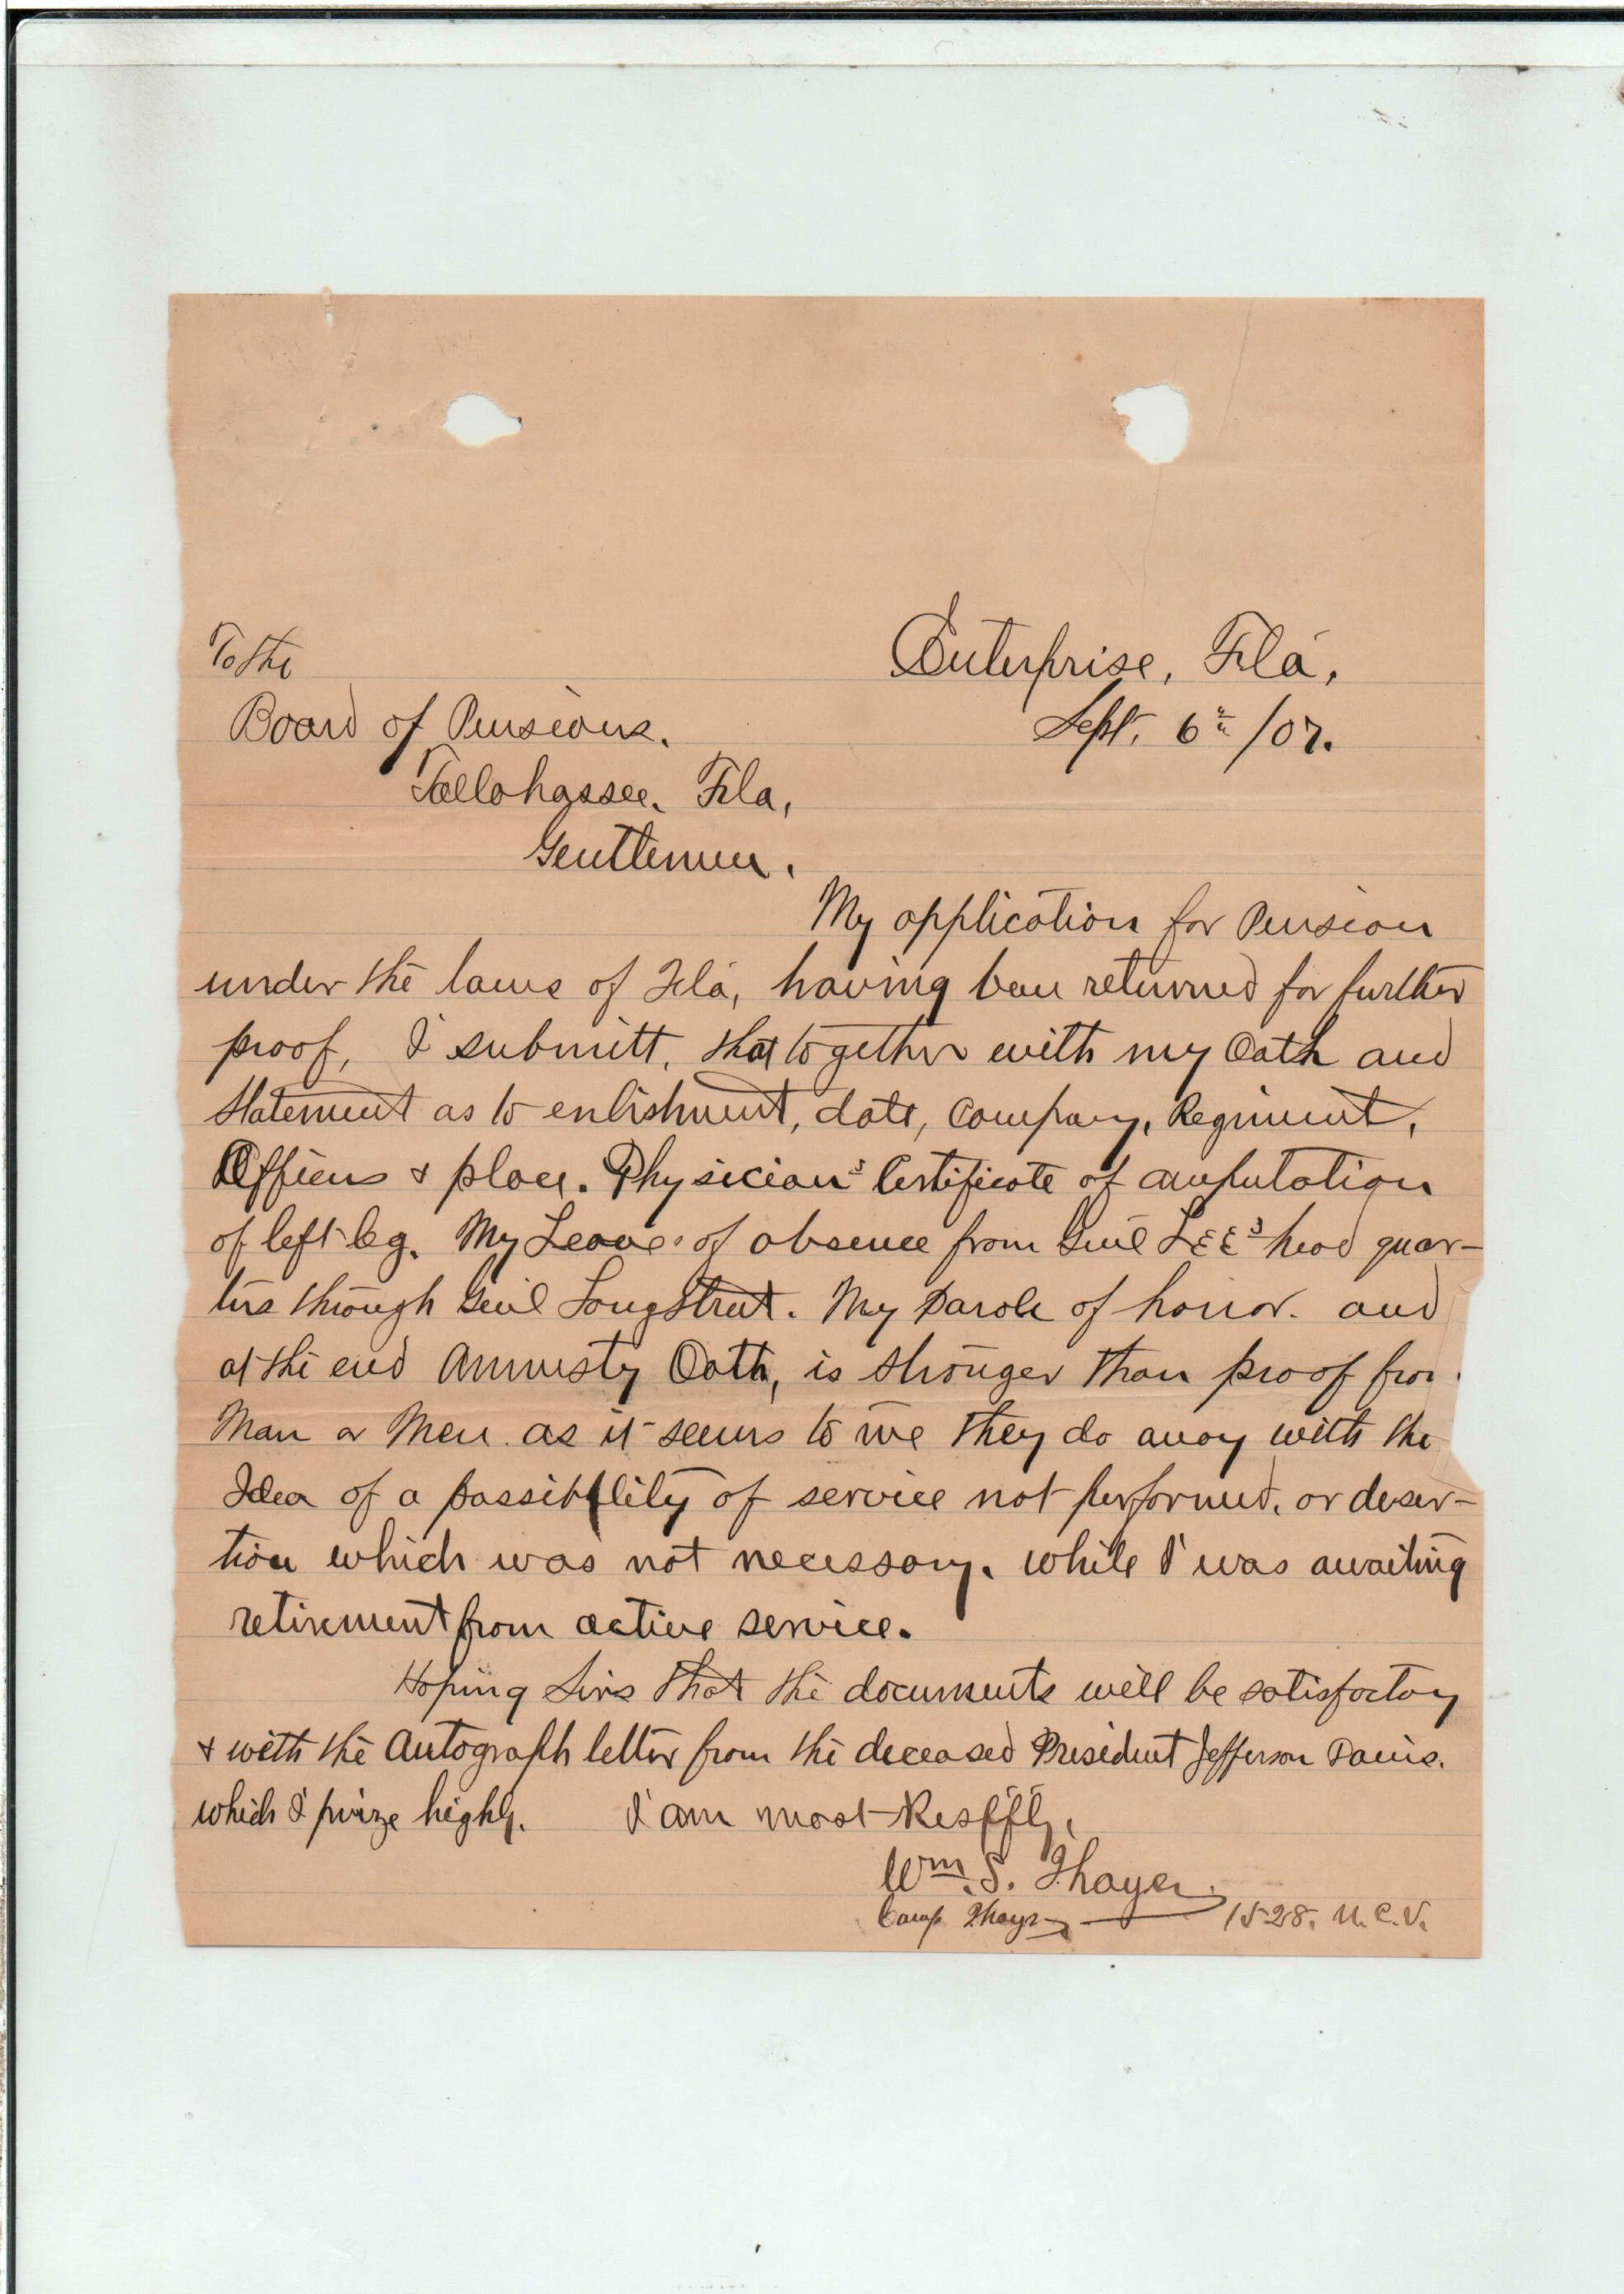 To the
Enterprise, Fla,
Board of Pensions.
Sept. 6th /07.
Tallahassee, Fla,
Gentlemen.
My application for Pension
under the laws of Fla, having been returned for further
proof, I submitt, that together with my Oath and
Statement as to enlishment, date, Company, Regiment,
Officers & place. Physician's Certificate of amputation
of left leg. My Leave of absence from Genl LEE's head quar-
ters through Genl LongStreet. My Parole of honor. and
at the end Amnesty Oath, is stronger than proof from
Man or Men. as it seems to me they do away with the
Idea of a possibility of service not performed, or deser-
tion which was not necessary. while I was awaiting
retirement from active service.
Hoping Sirs that the documents will be satisfactory
& with the Autograph letter from the deceased President Jefferson Davis.
which I prize highly. I am most Respffly,
Wm. S. Thayer
Camp Thayer 1528. U.C.V.